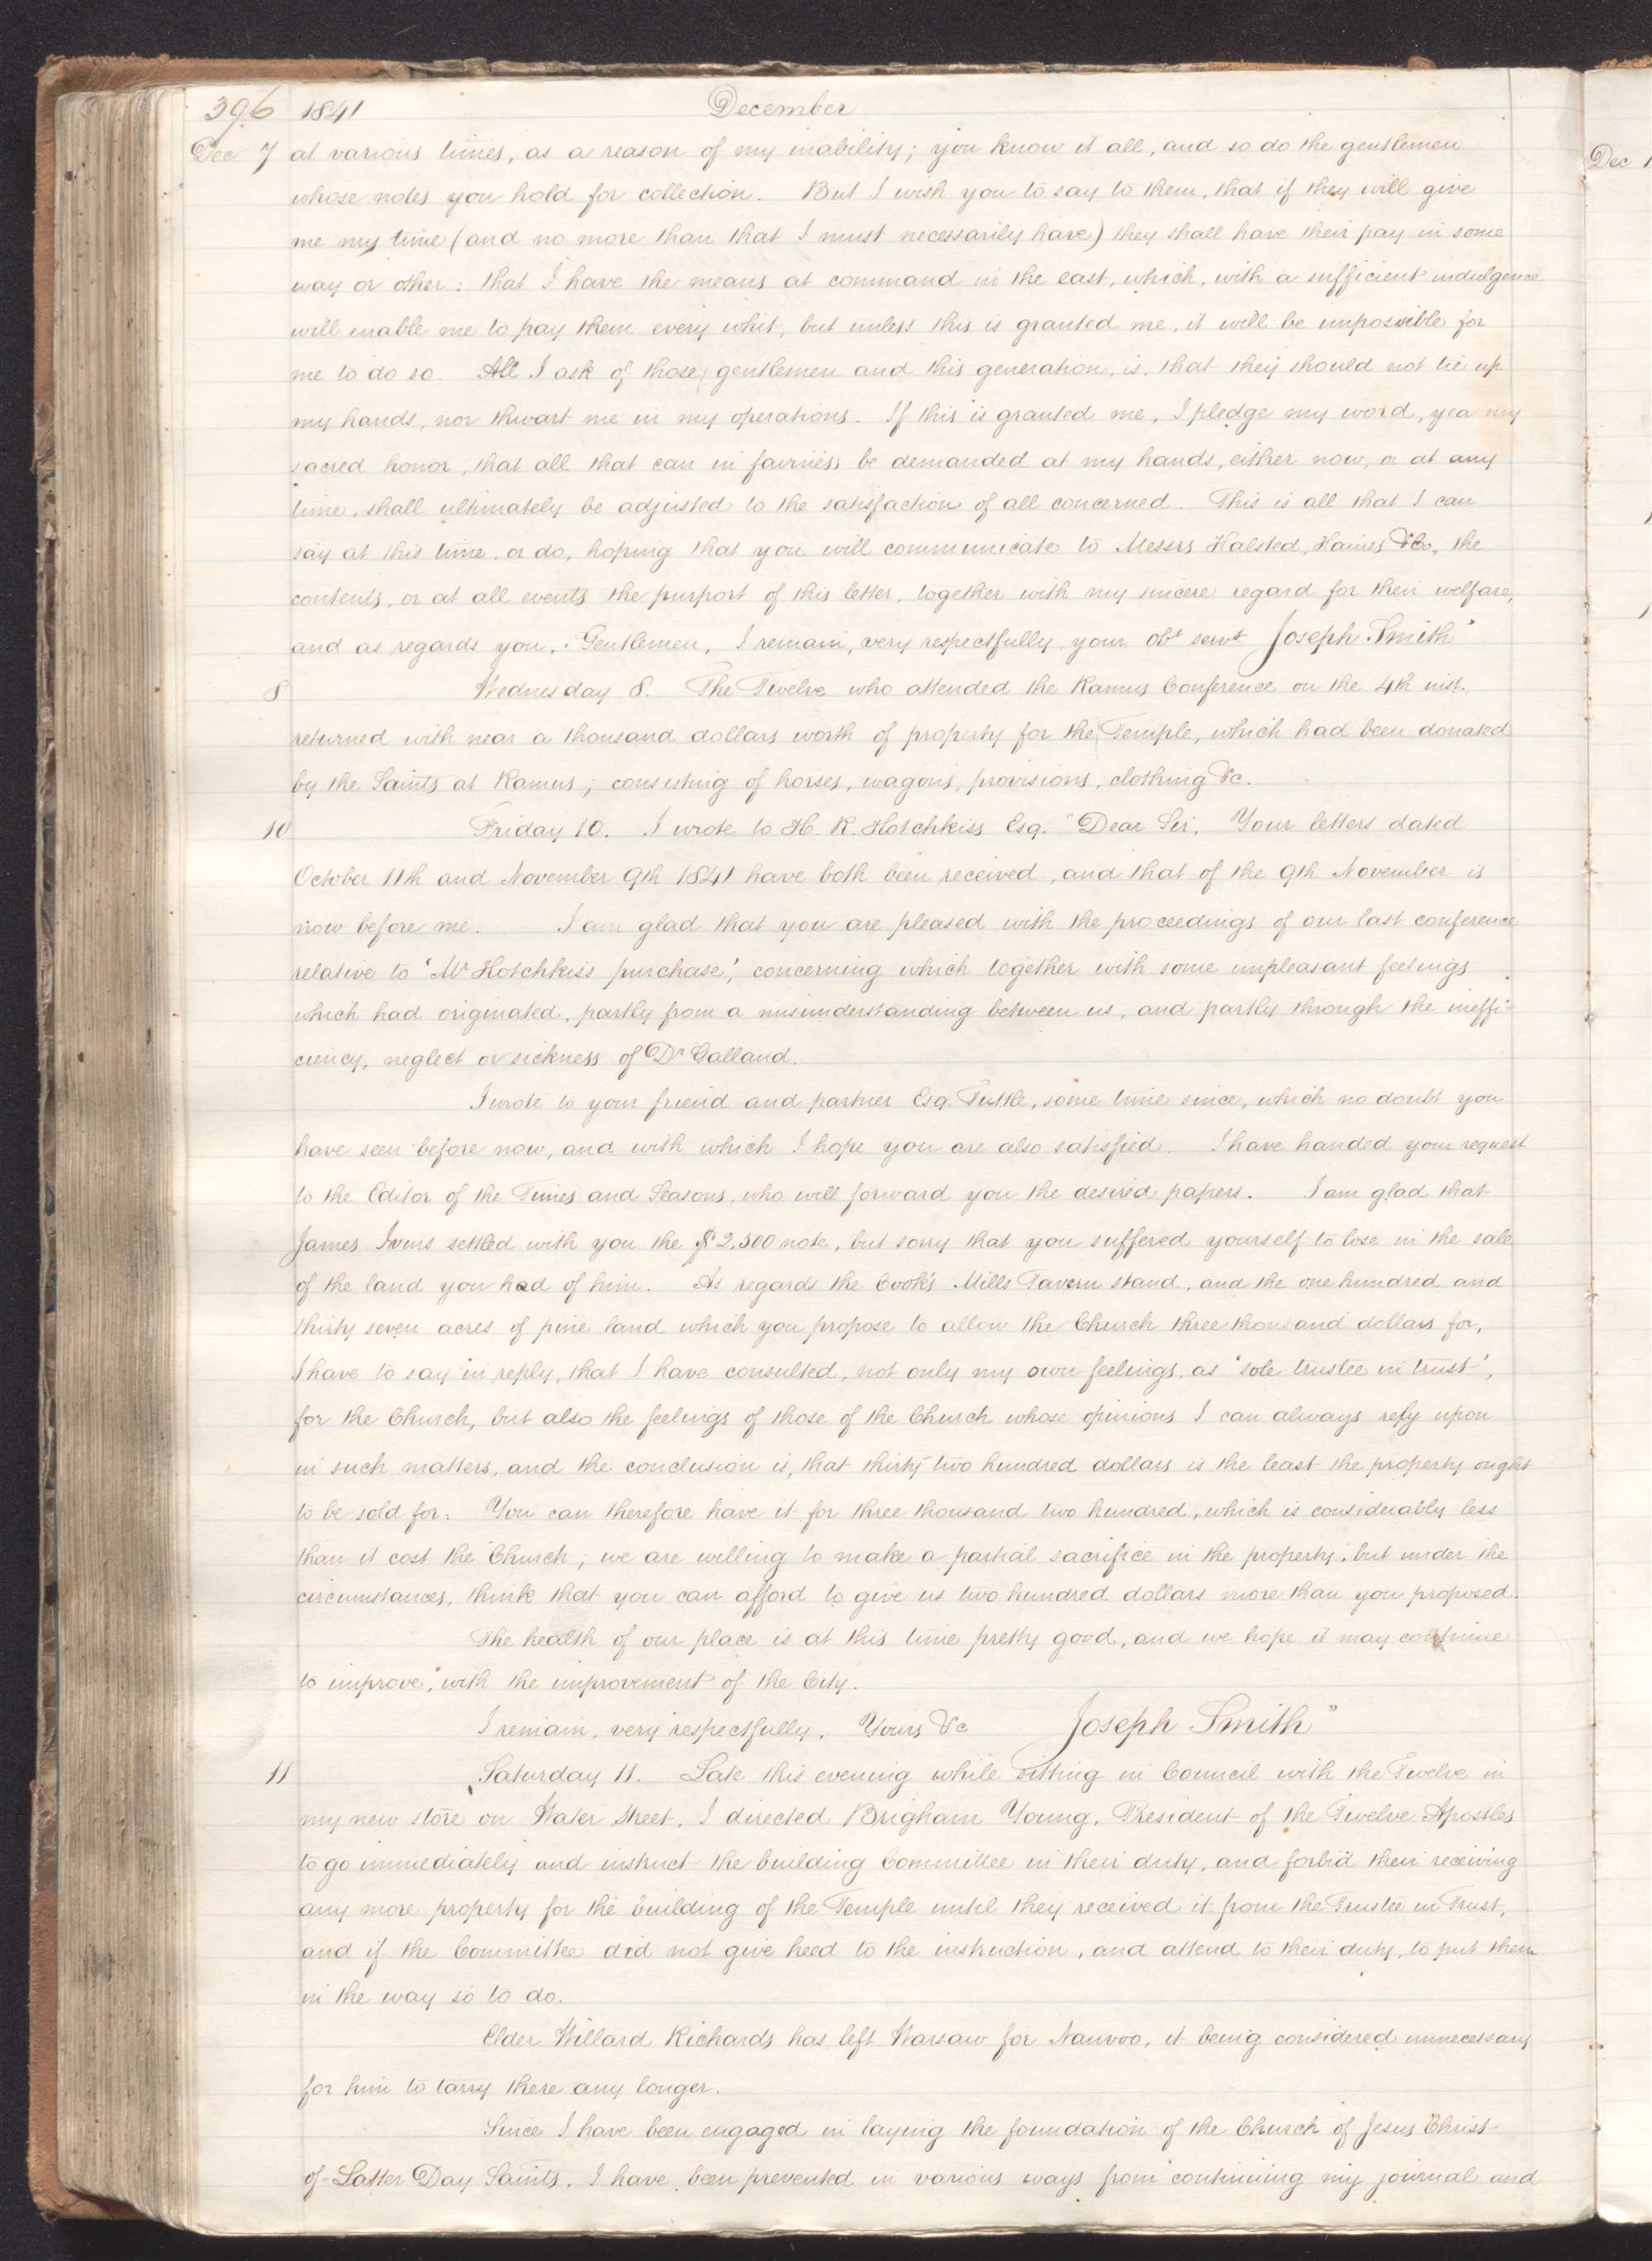 396 1841 December
Dec 7 at various times, as a reason of my inability; you know it all, and so do the gentlemen
Dec 1
whose notes you hold for collection. But I wish you to say to them, that if they will give
me my time (and no more than that I must necessarily have) they shall have their pay in some
way or other: that I have the means at command in the east, which, with a sufficient indulgence
will enable me to pay them every whit, but unless this is granted me, it will be impossible for
me to do so. All I ask of those gentlemen and this generation, is, that they should not tie up
my hands, nor thwart me in my operations. If this is granted me, I pledge my word, yea my
sacred honor, that all that can in fairness be demanded at my hands, either now, or at any
time, shall ultimately be adjusted to the satisfaction of all concerned. This is all that I can
say at this time, or do, hoping that you will communicate to Messrs Halsted, Haines &Co, the
contents, or at all events the purport of this letter, together with my sincere regard for their welfare,
and as regards you, Gentlemen, I remain, very respectfully, your obt servt Joseph Smith"
8 Wednesday 8. The Twelve who attended the Ramus Conference on the 4th inst.,
returned with near a thousand dollars worth of property for the Temple, which had been donated
by the Saints at Ramus; consisting of horses, wagons, provisions, clothing &c.
10 Friday 10. I wrote to H. R. Hotchkiss Esq. "Dear Sir, Your letters dated
October 11th and November 9th 1841 have both been received, and that of the 9th November is
now before me. I am glad that you are pleased with the proceedings of our last conference
relative to 'Mr Hotchkiss purchase', concerning which together with some unpleasant feelings
which had originated, partly from a misunderstanding between us, and partly through the ineffi-
ciency, neglect or sickness of Dr Galland.
I wrote to your friend and partner Esq. Tuttle, some time since, which no doubt you
have seen before now, and with which I hope you are also satisfied. I have handed your request
to the Editor of the Times and Seasons, who will forward you the desired papers. I am glad that
James Ivins settled with you the $2,500 note, but sorry that you suffered yourself to lose in the sale
of the land you had of him. As regards the Cook's Mills Tavern stand, and the one hundred and
thirty seven acres of pine land which you propose to allow the Church three thousand dollars for,
I have to say in reply, that I have consulted, not only my own feelings, as 'sole trustee in trust',
for the Church, but also the feelings of those of the Church whose opinions I can always rely upon
in such matters, and the conclusion is, that thirty two hundred dollars is the least the property ought
to be sold for. You can therefore have it for three thousand two hundred, which is considerably less
than it cost the Church; we are willing to make a partial sacrifice in the property, but under the
circumstances, think that you can afford to give us two hundred dollars more than you proposed.
The health of our place is at this time pretty good, and we hope it may continue
to improve, with the improvement of the City.
I remain, very respectfully, Yours &c Joseph Smith"
11 Saturday 11. Late this evening while sitting in Council with the Twelve in
my new store on Water Street, I directed Brigham Young, President of the Twelve Apostles
to go immediately and instruct the building Committee in their duty, and forbid their receiving
any more property for the building of the Temple until they received it from the Trustee in Trust,
and if the Committee did not give heed to the instruction, and attend to their duty, to put them
in the way so to do.
Elder Willard Richards has left Warsaw for Nauvoo, it being considered unnecessary
for him to tarry there any longer.
Since I have been engaged in laying the foundation of the Church of Jesus Christ
of Latter Day Saints, I have been prevented in various ways from continuing my journal and